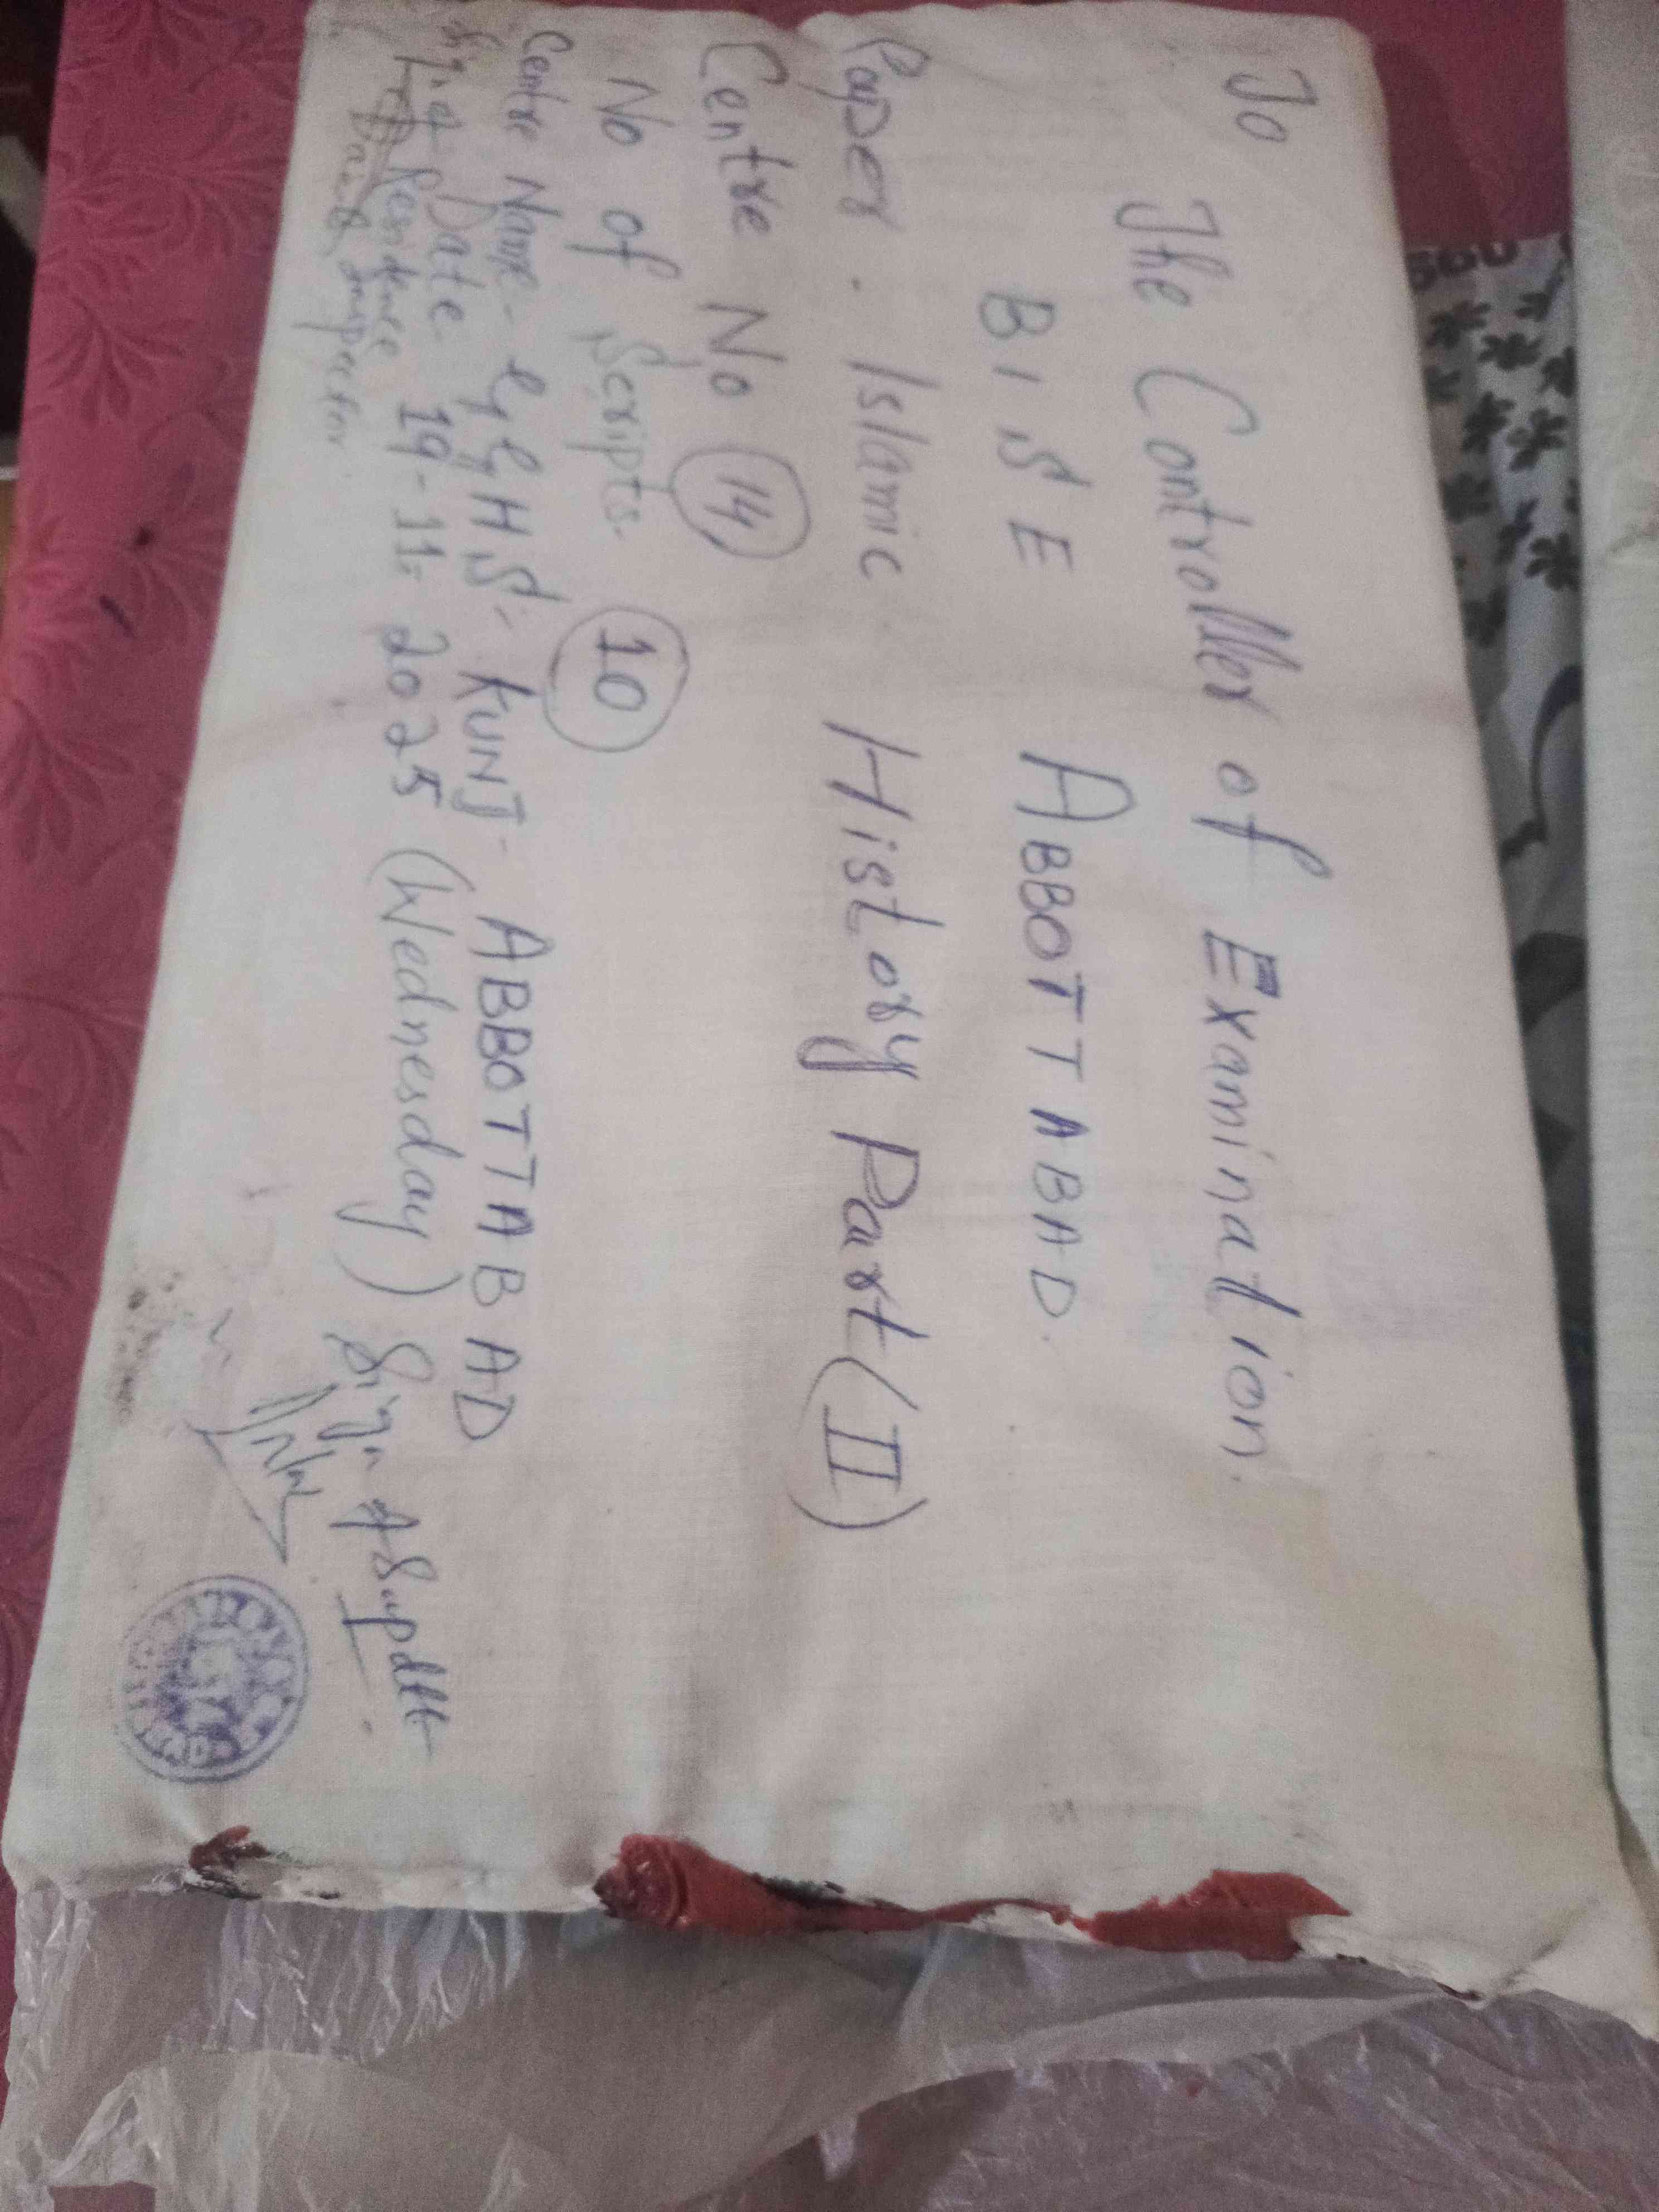 To
The Controller of Examination.
B I S E ABBOTTABAD.
Paper . Islamic History Part (II)
Centre No 14
No of Scripts- 10
Centre Name - GGHS - KUNJ - ABBOTTABAD
Date 19-11-2025 (Wednesday) Sign of Supdtt
Sign of
Residence Inspector.